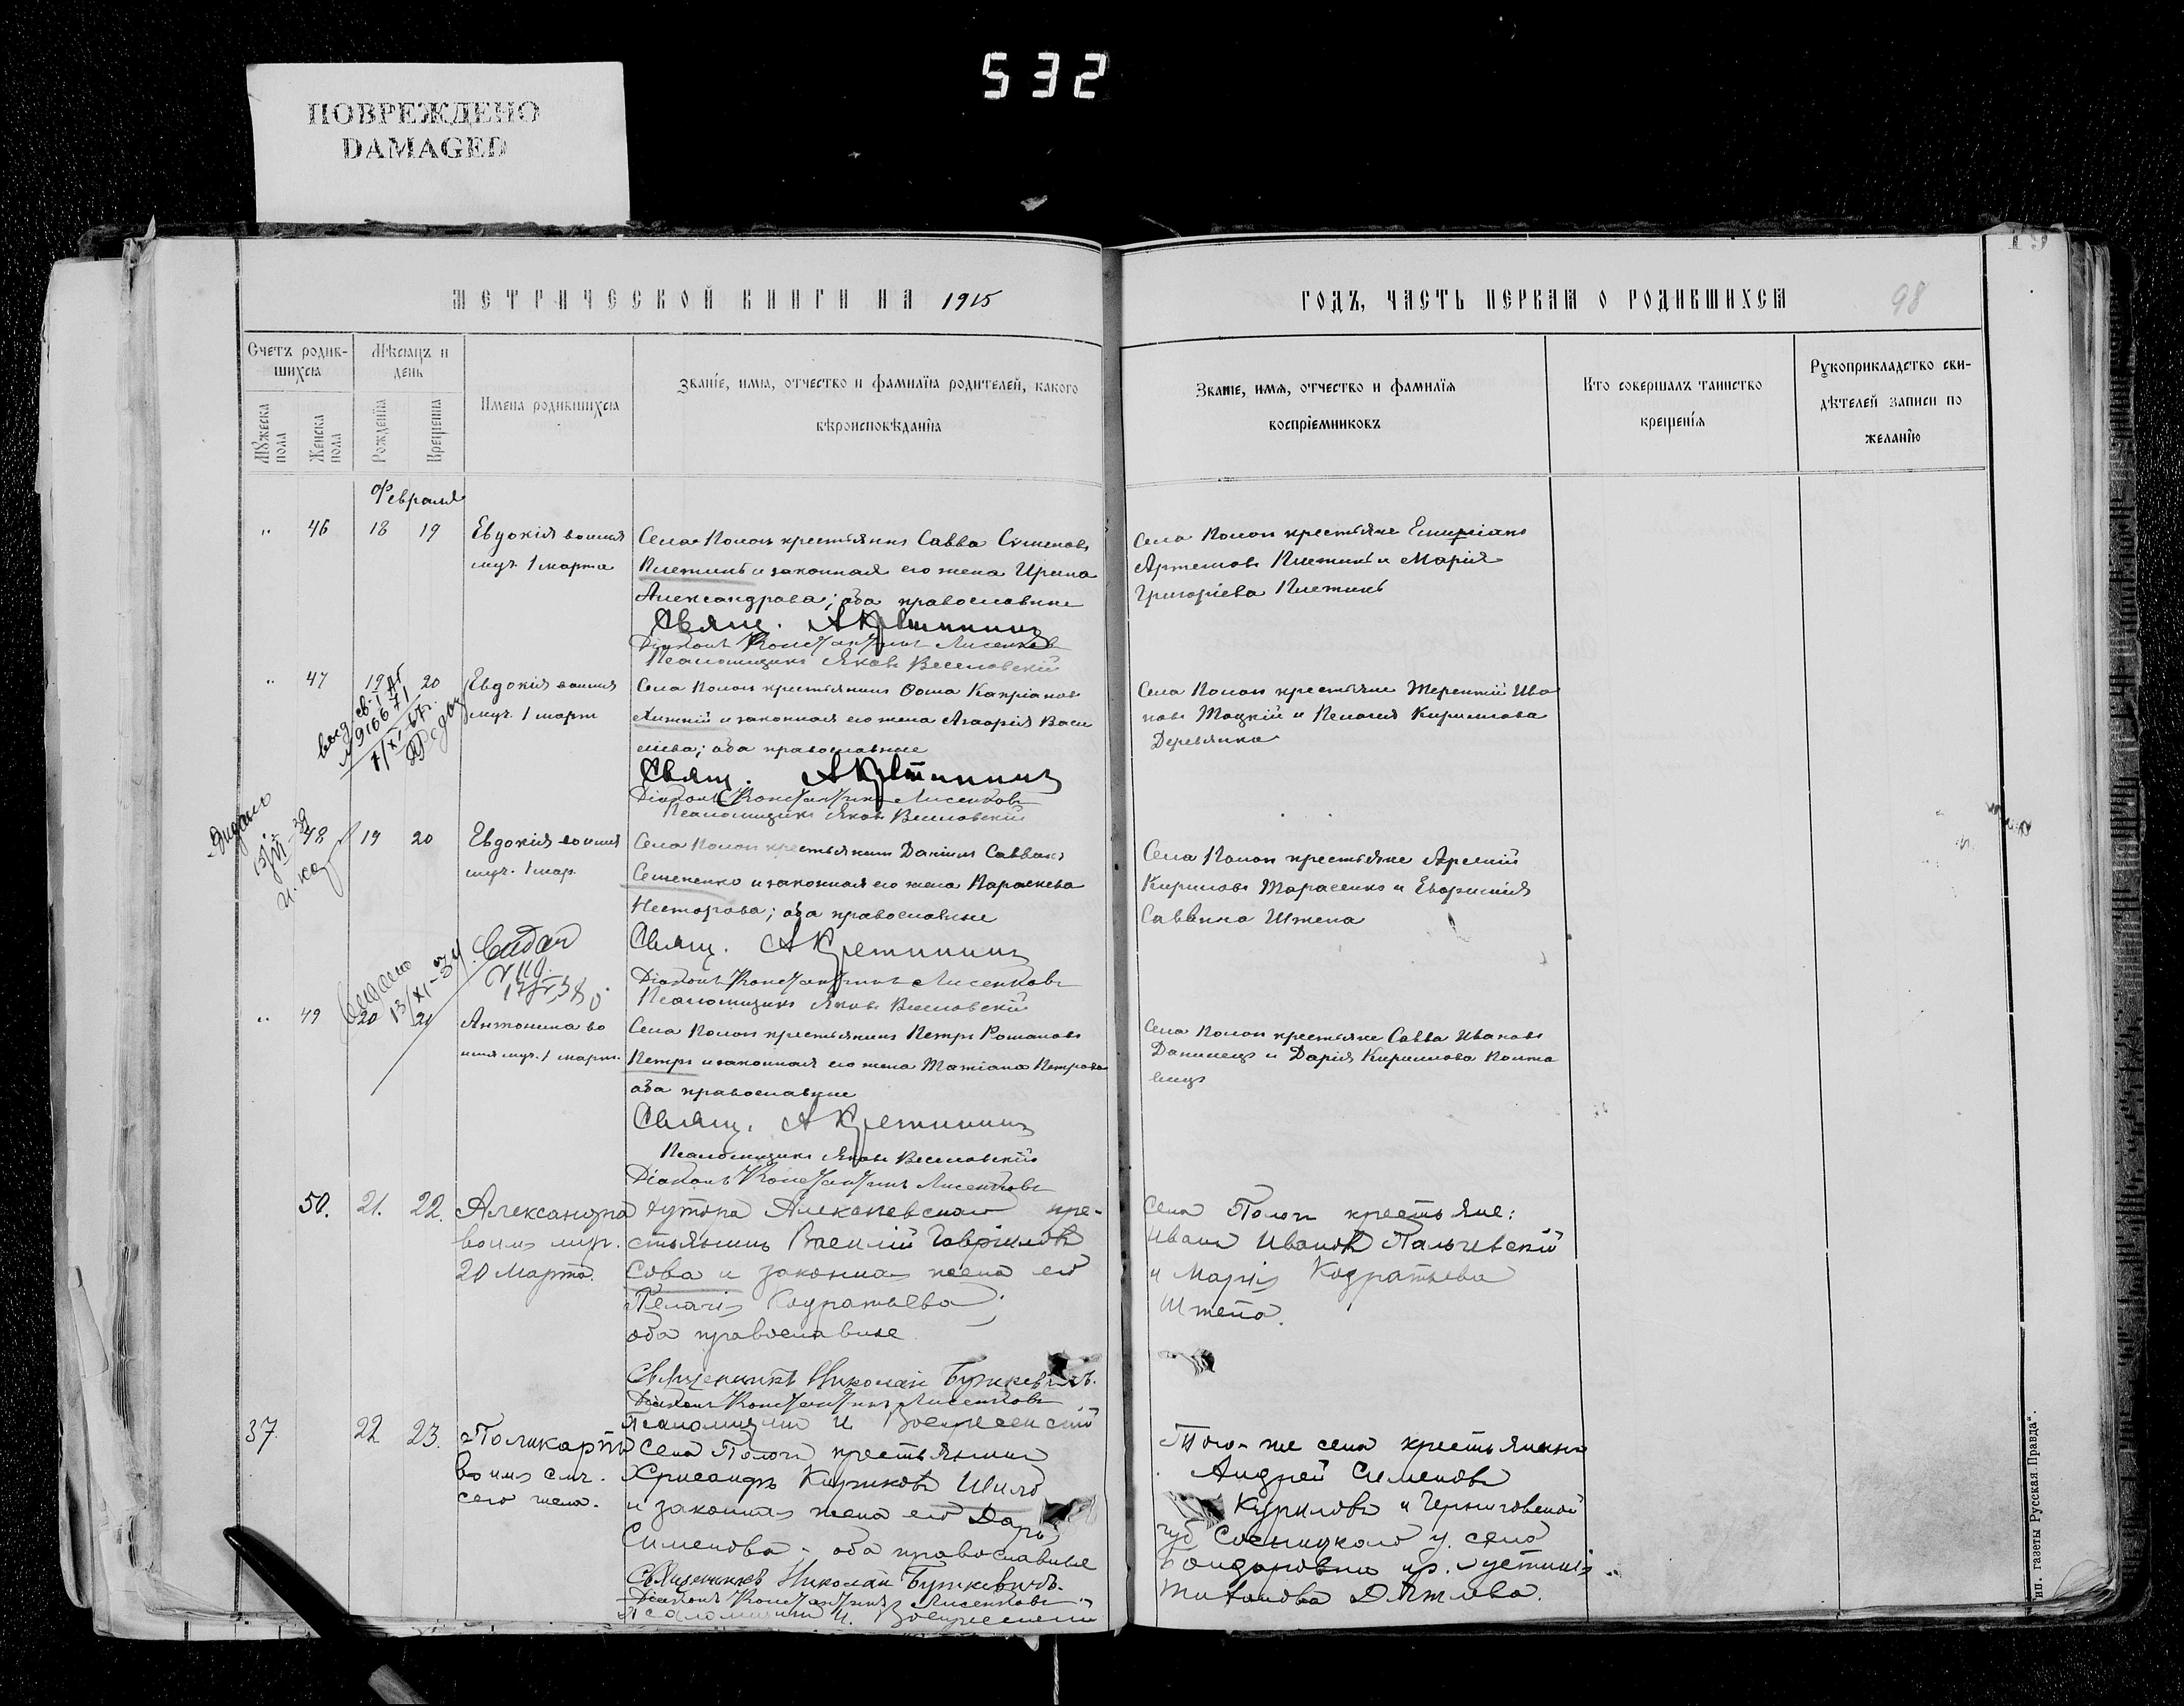 532
ПОВРЕЖДЕНО
DAMAGED
МЕТРИЧЕСКОЙ КНИГИ НА 1915
ГОДЪ, ЧАСТЬ ПЕРВАЯ О РОДИВШИХСЯ
98
Счетъ родив-
шихся
Мѣсяцъ и
день
Мужеска
пола
Женска
пола
Рожденія
Крещенія
Имена родившихся
Званіе, имя, отчество и фамилія родителей, какого
вѣроисповѣданія
Званіе, имя, отчество и фамилія
воспріемниковъ
Кто совершалъ таинство
крещенія
Рукоприкладство сви-
дѣтелей записи по
желанію
Февраля
" 46 18 19 Евдокія во имя
муч. 1 марта
Села Пологъ крестьянинъ Савва Сименовъ
Плетинь и законная его жена Ирина
Александрова; оба православные
Свящ. А Кретининъ
Діаконъ Константинъ Лисенковъ
Псаломщикъ Яковъ Веселовскій
Села Пологъ крестьяне
Артемовъ Плетинь и Марія
Григоріева Плетинь
" 47 19 20 Евдокія во имя
муч. 1 март
Села Пологъ крестьянинъ Ѳома Капріановъ
и законная его жена Агафія Васи
ліева; оба православные
Свящ. А Кретининъ
Діаконъ Константинъ Лисенковъ
Псаломщикъ Яковъ Веселовскій
Села Пологъ крестьяне Терентій Ива
новъ Тоцкій и Пелагія Кириллова
Деревянко
910671
Выдано
" 48 19 20 Евдокія во имя
муч. 1 мар.
Села Пологъ крестьянинъ Даніилъ Саввинъ
Семененко и законная его жена Параскева
Несторова; оба православные
Свящ. А Кретининъ
Діаконъ Константинъ Лисенковъ
Псаломщикъ Яковъ Веселовскій
Села Пологъ крестьяне
Кириловъ Тарасенко и Евфимія
Саввина Штепа
13/XI-34
" 49 20 21 Антонина во
имя муч. 1 март.
Села Пологъ крестьянинъ Петръ Романовъ
Петръ и законная его жена Татіана Петрова
оба православные
Свящ. А Кретининъ
Псаломщикъ Яковъ Веселовскій
Діаконъ Константинъ Лисенковъ
Села Пологъ крестьяне Савва Ивановъ
Данилецъ и Дарія Кириллова Полта
вецъ
50. 21. 22. Александра
во имя муч.
20 Марта.
хутора кре-
стьянинъ Василій Гавріиловъ
Сова и законная жена его
Пелагія Кодратьева;
оба православные
Священникъ Николай Бужкевичъ.
Діаконъ Константинъ Лисенковъ
Псаломщикъ И. Воскресенскій
Села Пологъ крестьяне:
Иванъ Ивановъ Пальчевскій
и Марія Кодратьева
Штепа.
37 22 23. Поликарпъ
во имя смч.
сего чела.
Села Пологъ крестьянинъ
Хрисанфъ Кириковъ Шило
и законная жена его Дарья
Сименова - оба православные
Священникъ Николай Бужкевичъ.
Діаконъ Константинъ Лисенковъ
Псаломщикъ И. Воскресенскій
Того-же села крестьянинъ
Андрей Сименовъ
Куриловъ и Черниговской
губ Сосницкаго у. села
Бондаровка кр. Устинія
Дятлова.
ип. газеты Русская Правда".